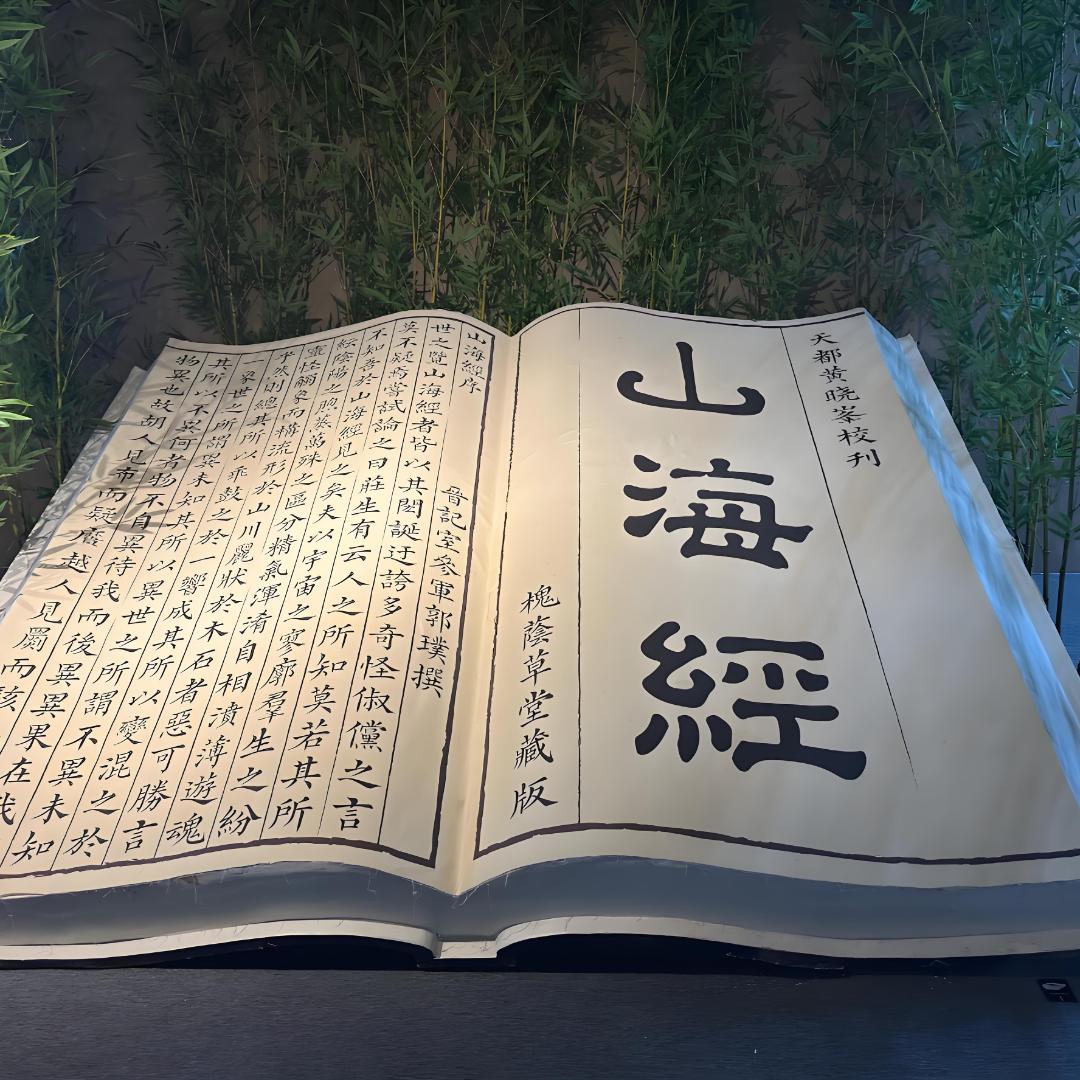 天都黄晓峯校刊
山海經
槐蔭草堂藏版
山海經序
晉記室參軍郭璞撰
世之覽山海經者皆以其閎誕迂誇多奇怪俶儻之言
莫不疑焉嘗試論之曰莊生有云人之所知莫若其所
不知吾於山海經見之矣夫以宇宙之寥廓羣生之紛
紜陰陽之煦蒸萬殊之區分精氣渾淆自相濆薄遊魂
靈怪觸象而構流形於山川麗狀於木石者惡可勝言
乎然則總其所以乖鼓之於一響成其所以變混之於
一象世之所謂異未知其所以異世之所謂不異未知
其所以不異何者物不自異待我而後異異果在我
物異也故胡人見布而疑黂越人見罽而駭